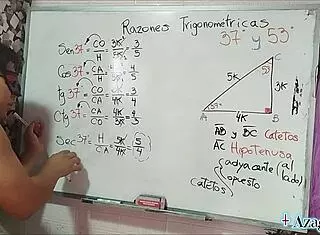 Razones Trigonométricas
37° y 53°
Sen37° = CO/H = 3K/5K = 3/5
Cos 37° = CA/H = 4K/5K = 4/5
tg 37° = CO/CA = 3K/4K = 3/4
Ctg 37° = CA/CO = 4K/3K = 4/3
Sec 37° = H/CA = 5K/4K = 5/4
C
53°
5K
3K
37°
A
4K
B
AB y BC Catetos
AC Hipotenusa
Catetos { adyacente (al lado)
opuesto
+ Azag